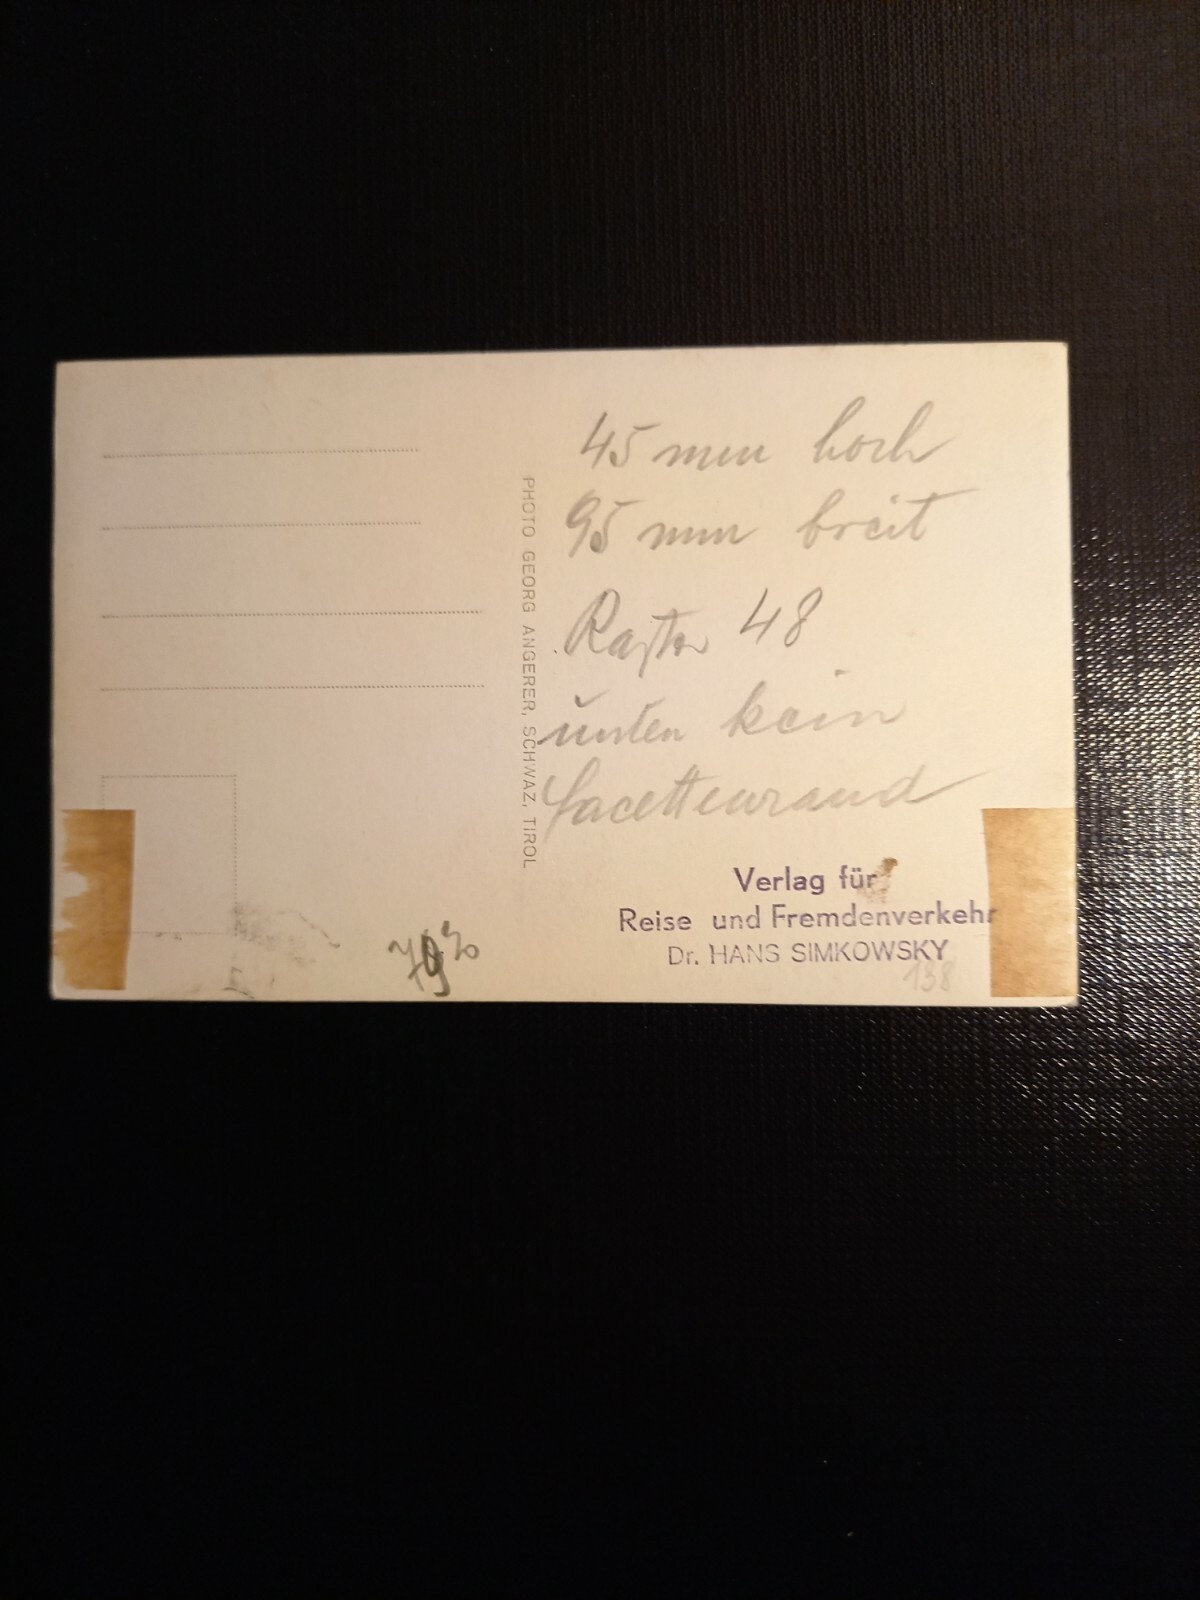 45 mm hoch
95 mm breit
Raster 48
unten kein
Facettenrand
PHOTO GEORG ANGERER, SCHWAZ, TIROL
Verlag für
Reise und Fremdenverkehr
Dr. HANS SIMKOWSKY
138